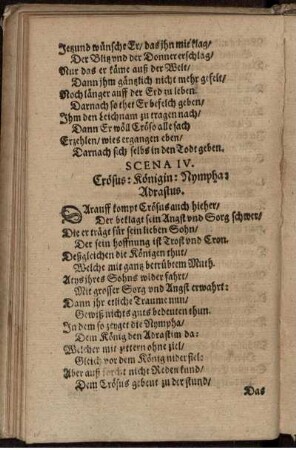 Jetzund wünscht Er/ das ihn mit klag/
Der Blitz vnd der Donner erschlag/
Nur das er käme auß der Welt/
Dann jhm gäntzlich nicht mehr gefelt/
Noch länger auff der Erd in leben.
Darnach so thet Er befelch geben/
Ihm den Leichnam zu tragen nach/
Dann Er wöll Cröso alle sach
Erzehlen/ wies ergangen eben/
Darnach sich selbs in den Todt geben.
SCENA IV.
Crösus: Königin: Nympha:
Adrastus.
DArauff kompt Crösus auch hieher/
Der beklagt sein Angst vnd Sorg schwer/
Die er trägt für sein lieben Sohn/
Der sein hoffnung ist Trost vnd Cron.
Deßgleichen die Königen thut/
Welche mit gantz betrübtem Muth.
Atys jhres Sohns widerfahrt/
Mit grosser Sorg vnd Angst erwahrt:
Dann jhr etliche Traume nun/
Gewiß nichts guts bedeuten thun.
In dem so zeyget die Nympha/
Dem König den Adrastim da:
Welcher mit zittern ohne ziel/
Gleich vor dem König nider fiel:
Aber auß forcht nicht Reden kund/
Dem Crösus gebeut zu der stund/
Das